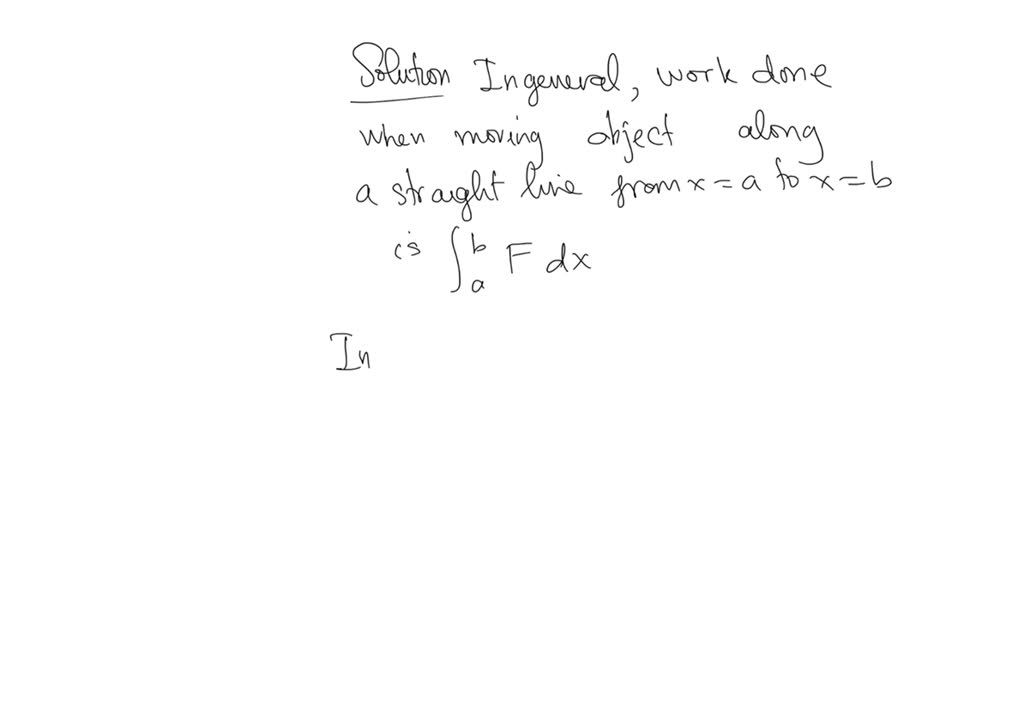 Solution In general, work done
when moving object along
a straight line from x = a to x = b
is ∫_a^b F dx
In